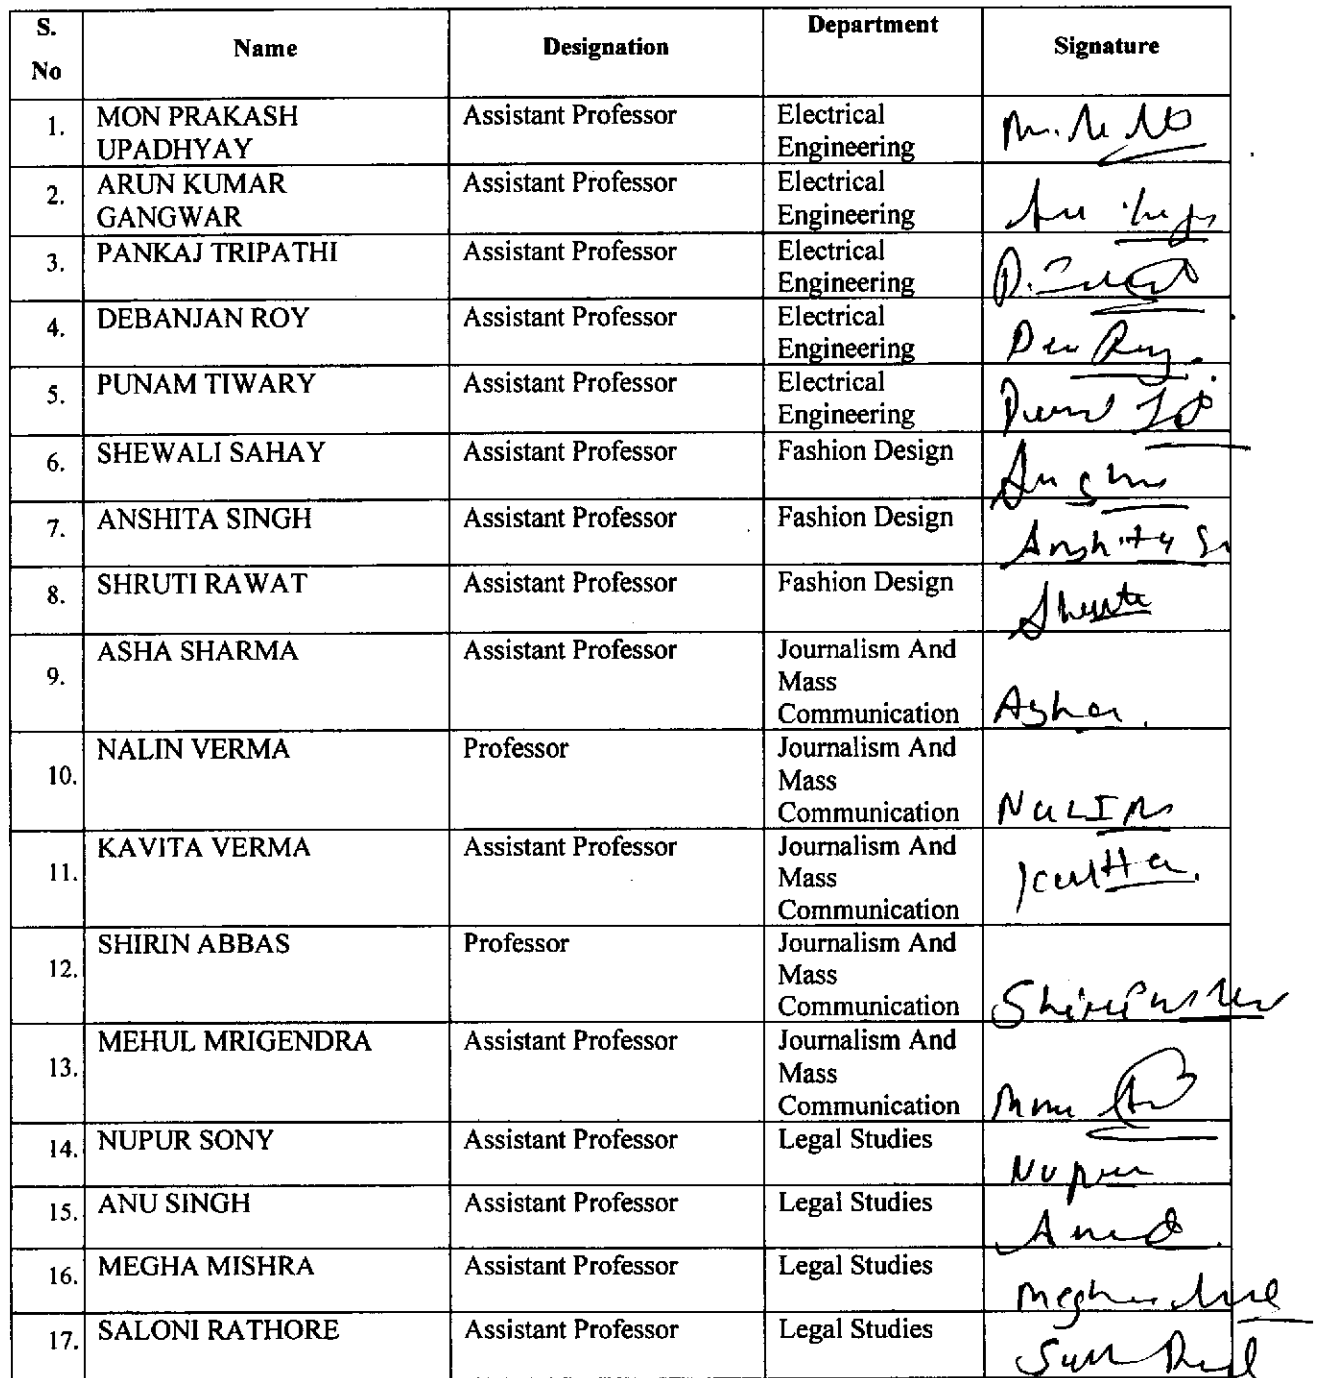 S.
No
Name
Designation
Department
Signature
1.
MON PRAKASH
UPADHYAY
Assistant Professor
Electrical
Engineering
2.
ARUN KUMAR
GANGWAR
Assistant Professor
Electrical
Engineering
3.
PANKAJ TRIPATHI
Assistant Professor
Electrical
Engineering
4.
DEBANJAN ROY
Assistant Professor
Electrical
Engineering
5.
PUNAM TIWARY
Assistant Professor
Electrical
Engineering
6.
SHEWALI SAHAY
Assistant Professor
Fashion Design
7.
ANSHITA SINGH
Assistant Professor
Fashion Design
8.
SHRUTI RAWAT
Assistant Professor
Fashion Design
9.
ASHA SHARMA
Assistant Professor
Journalism And
Mass
Communication
Asha.
10.
NALIN VERMA
Professor
Journalism And
Mass
Communication
11.
KAVITA VERMA
Assistant Professor
Journalism And
Mass
Communication
12.
SHIRIN ABBAS
Professor
Journalism And
Mass
Communication
13.
MEHUL MRIGENDRA
Assistant Professor
Journalism And
Mass
Communication
14.
NUPUR SONY
Assistant Professor
Legal Studies
Nupur
15.
ANU SINGH
Assistant Professor
Legal Studies
16.
MEGHA MISHRA
Assistant Professor
Legal Studies
17.
SALONI RATHORE
Assistant Professor
Legal Studies